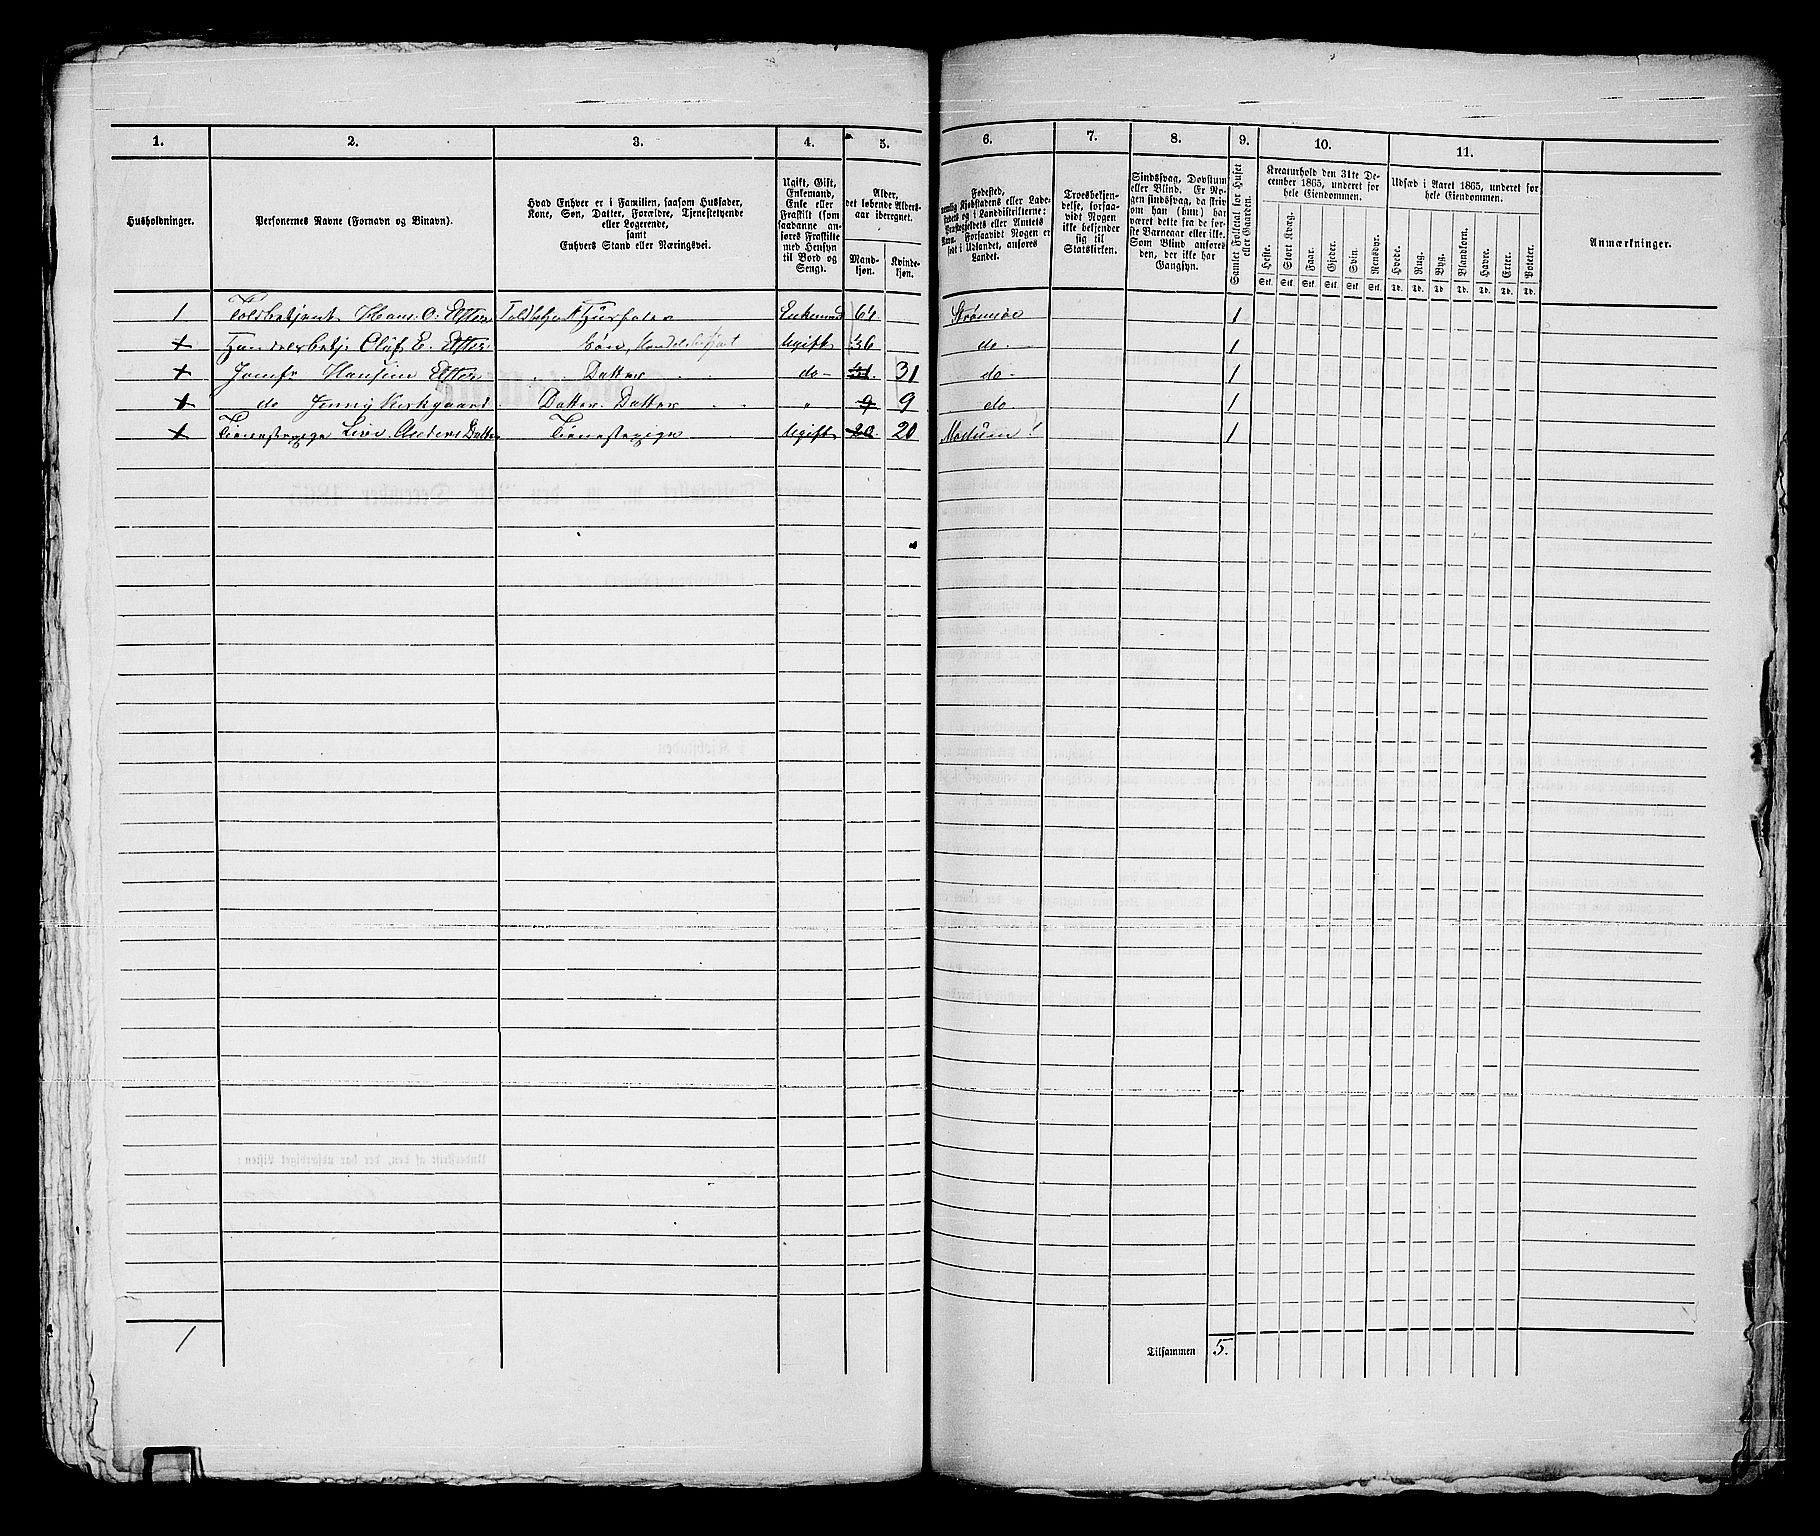 1. 2. 3. 4. 5. 6. 7. 8. 9. 10. 11.
Husholdninger.
Personernes Navne (Fornavn og Binavn).
Hvad Enhver er i Familien, saasom Husfader,
Kone, Søn, Datter, Forældre, Tjenestetyende
eller Logerende,
samt
Enhvers Stand eller Næringsvei.
Ugift, Gift,
Enkemand,
Enke eller
Fraskilt (som
saadanne an-
føres Fraskilte
med Hensyn
til Bord og
Seng).
Alder,
det løbende Alders-
aar iberegnet.
Mand-
kjøn.
Kvinde-
kjøn.
Fødested,
nemlig Kjøbstadens eller Lade-
stedets og i Landdistrikterne:
Præstegjeldets eller Amtets
Navn. Forsaavidt Nogen er
født i Udlandet, anføres
Landet.
Troesbekjen-
delse, forsaa-
vidt Nogen
ikke bekjender
sig til
Statskirken.
Sindssvag, Døvstum
eller Blind. Er No-
gen sindssvag, da skriv
om han (hun) har
været dette fra de før-
ste Barneaar eller ikke.
Som Blind anføres
den, der ikke har
Gangsyn.
Samlet Folketal for Huset
eller Gaarden.
Kreaturhold den 31te De-
cember 1865, underet for
hele Eiendommen.
Heste. Stort Kvæg. Faar. Gjeder. Svin. Rensdyr.
Stk. Stk. Stk. Stk. Stk. Stk.
Udsæd i Aaret 1865, underet for
hele Eiendommen.
Hvede. Rug. Byg. Blandkorn. Havre. Erter. Poteter.
Td. Td. Td. Td. Td. Td. Td.
Anmærkninger.
1 Toldbetjent Hans O. Etter Toldbetjent Huusfader Enkemand 64 Strømsøe 1
Handelsbetj. Oluf E. Etter Søn, Ugift 36 do 1
Jomfr Hansine Etter Datter do 31 31 do 1
do Jenny Kirkgaard Datter Datter " 9 9 do 1
Tienestepige Live Anders Datter Tienestepige Ugift 20 20 Modum 1
1
Tilsammen 5.